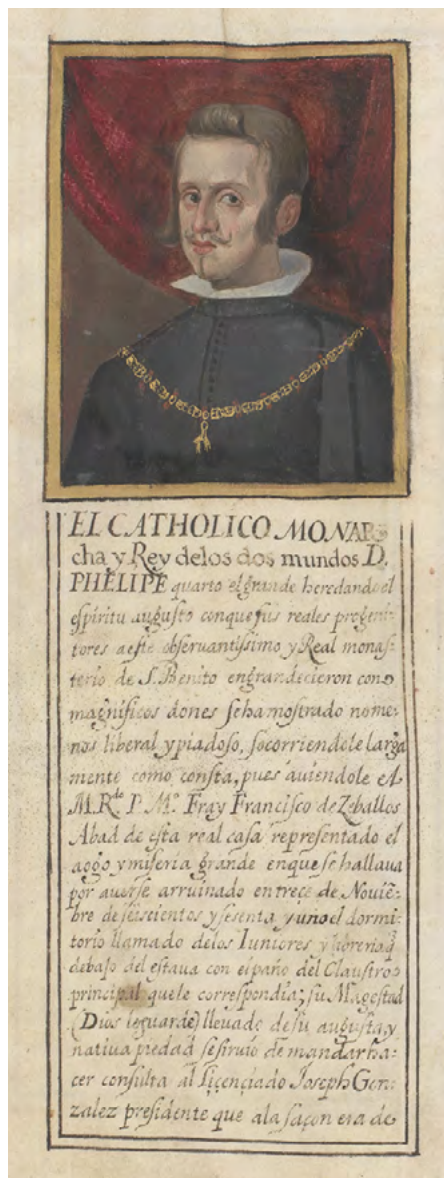 EL CATHOLICO MONAR
cha y Rey delos dos mundos D.
PHELIPE quarto el grande heredando el
espiritu augusto conque sus reales progeni-
tores a este observantissimo y Real monas-
terio de S. Benito engrandecieron con
magnificos dones se ha mostrado no me-
nos liberal y piadoso, socorriendole larga
mente como consta, pues auiendole el
M. Rdo. P. Mo. Fray Francisco de Zeballos
Abad de esta real casa representado el
aogo y miseria grande en que se hallaua
por auerse arruinado en treçe de Nouie-
bre de seiscientos y sesenta y uno el dormi-
torio llamado delos Iuniores y libreria q̃
debajo del estava con el paño del Claustro
principal que le correspondia; su Magestad
(Dios le guarde) lleuado de su augusta, y
natiua piedad se siruio de mandar ha-
cer consulta al Liçençiado Joseph Gon-
zalez presidente que ala saçon era de